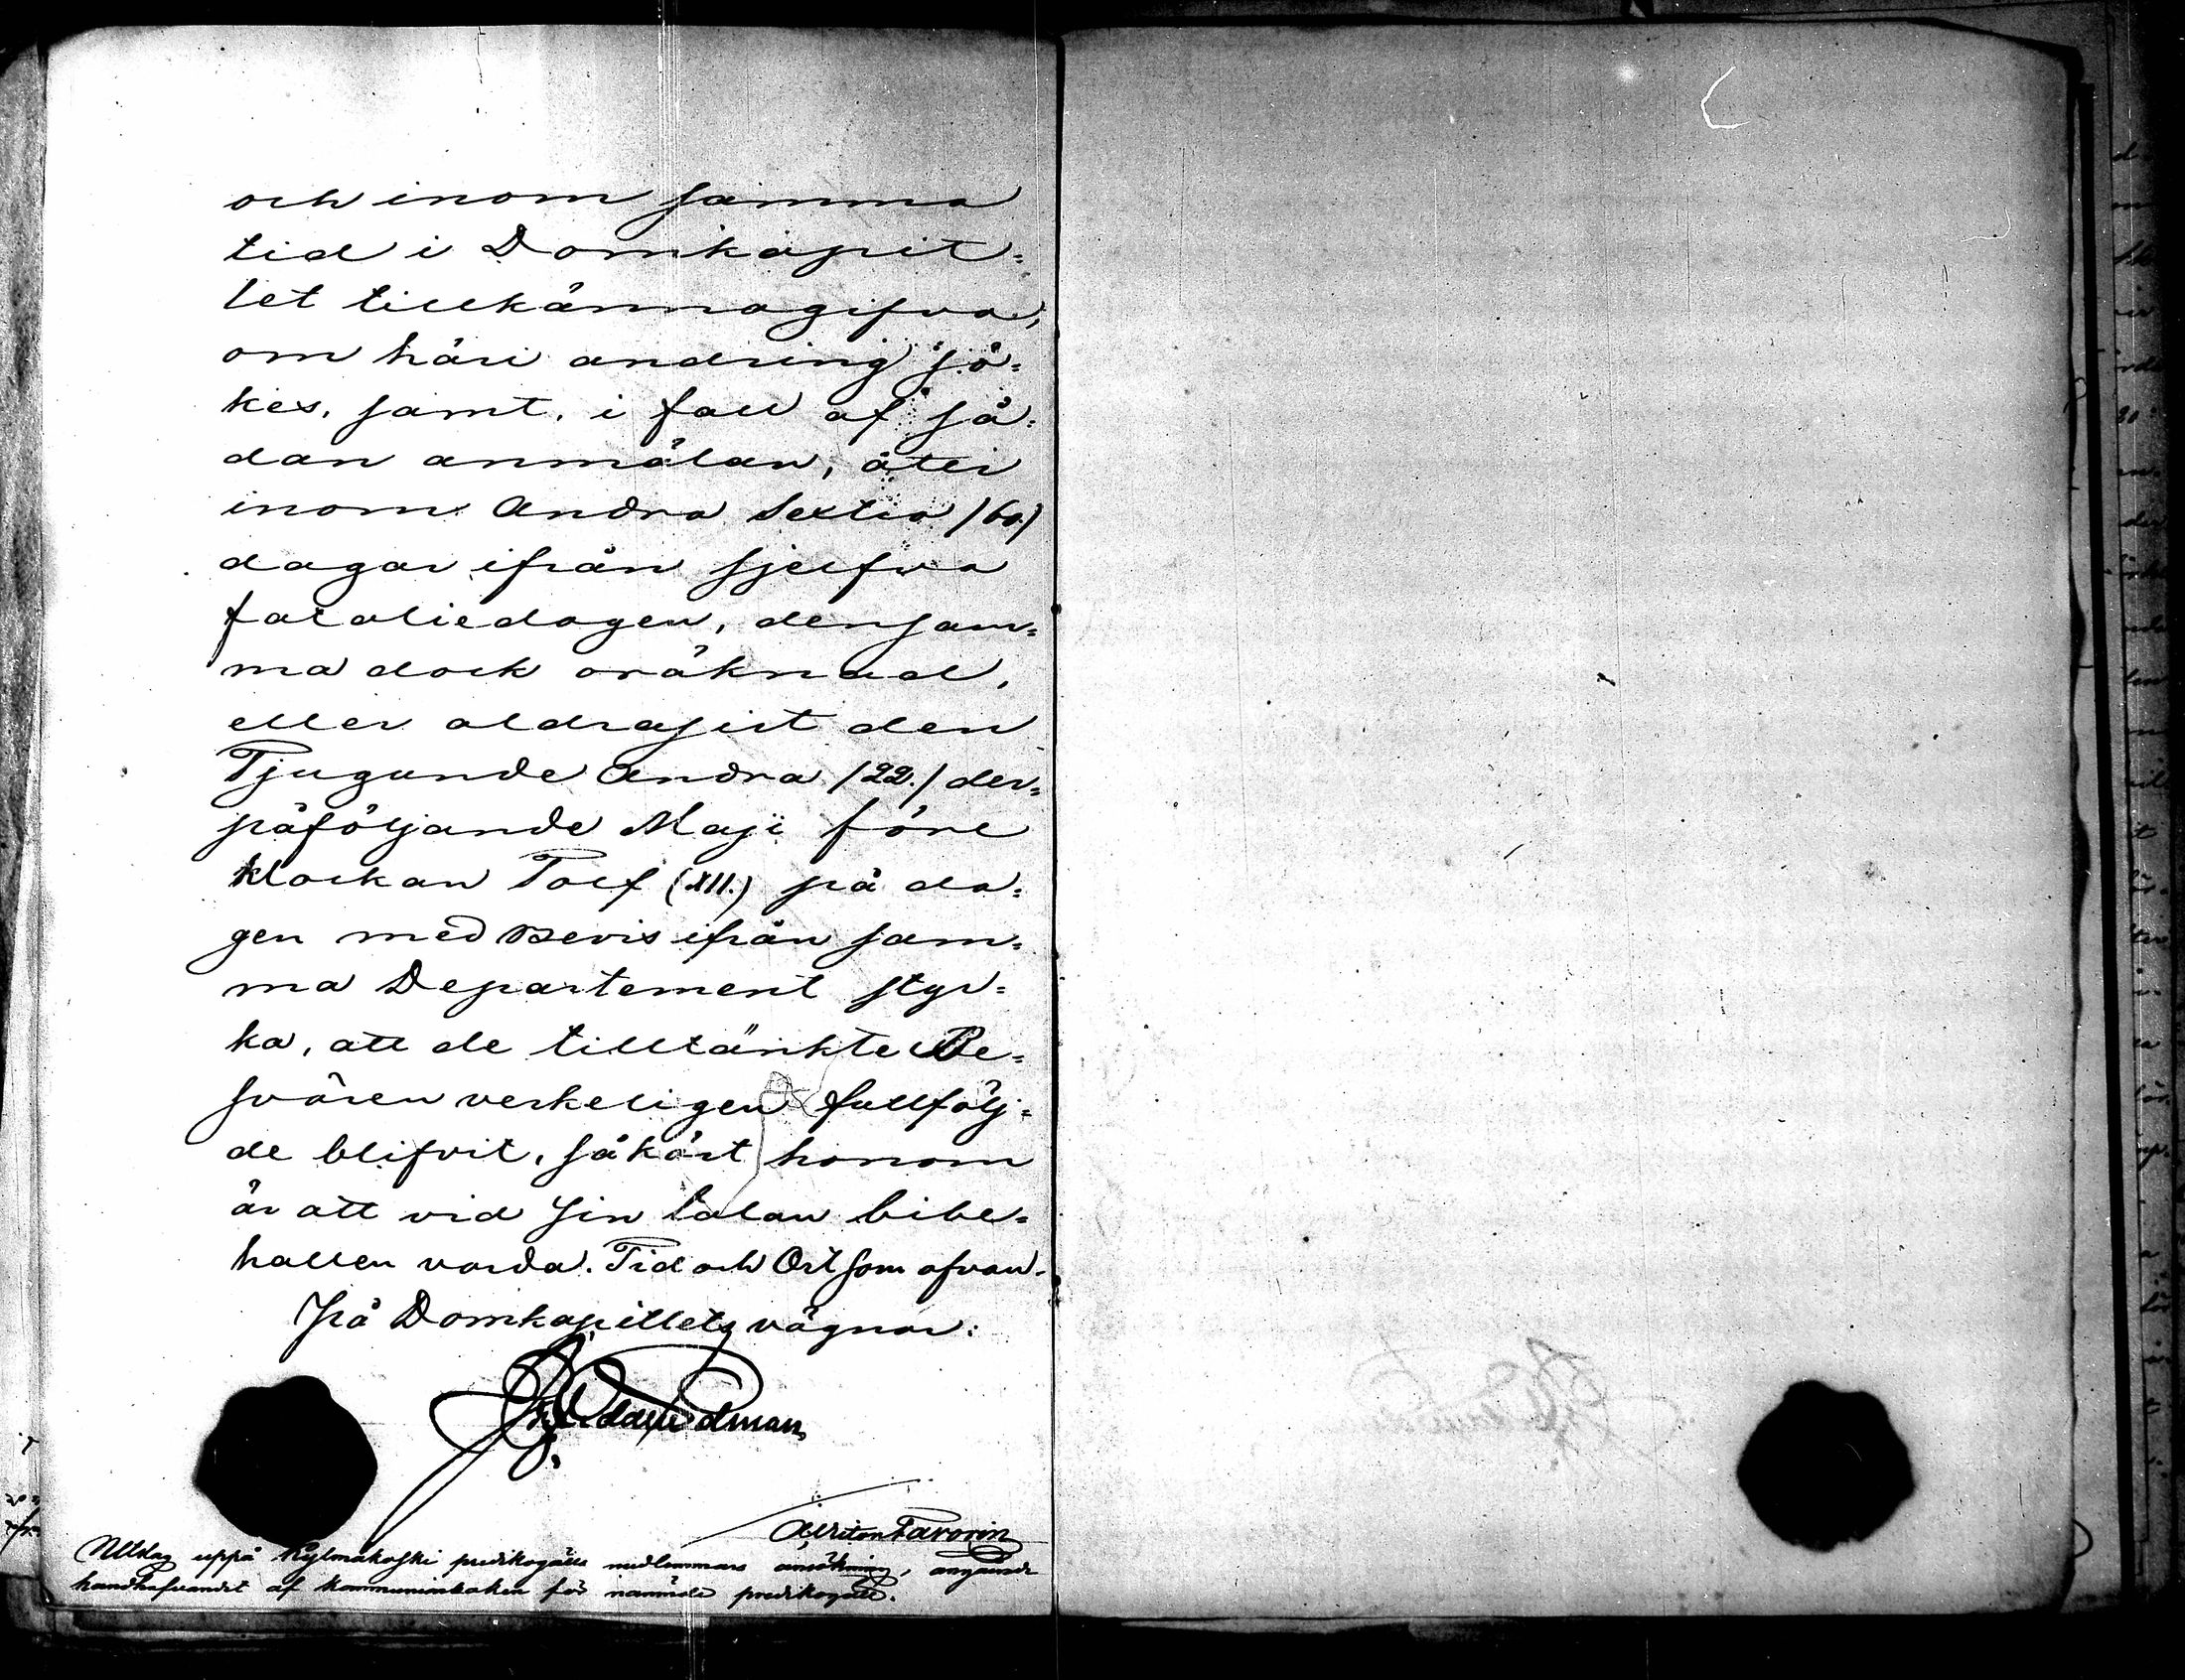 och inom samma
tid i Domkapit=
let tillkännagifva,
om häri ändring sö=
kes, samt, i fall af så=
dan anmälan, åter
inom Andra Sextio /60./
dagar ifrån sjelfva
fataliedagen, densam=
ma dock oräknad,
eller aldrasist den
Tjugunde Andra /22./ der=
påföljande Maji före
klockan Tolf (XII.) på da=
gen med Bevis ifrån sam=
ma Departement styr=
ka, att de tilltänkte Be=
svären verkeligen fullfölj=
de blifvit, såkärt honom
är att vid sin talan bibe=
hållen varda. Tid och Ort som ofvan.
På Domkapitlets vägnar:
Favorin
Utslag uppå Kylmäkoski predikogälls medlemmars ansökning, angående
handhafvandet af kommunionboken för nämnde predikogäll.